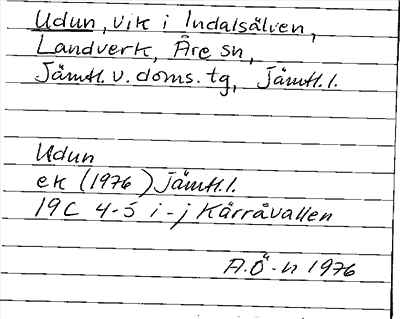 Udun, vik i Indalsälven,
Landverk, Åre sn,
Jämtl. v. doms. tg, Jämtl. l.
Udun
ek (1976) Jämtl. l.
19C 4-5 i-j Kärråvallen
A.Ö-n 1976